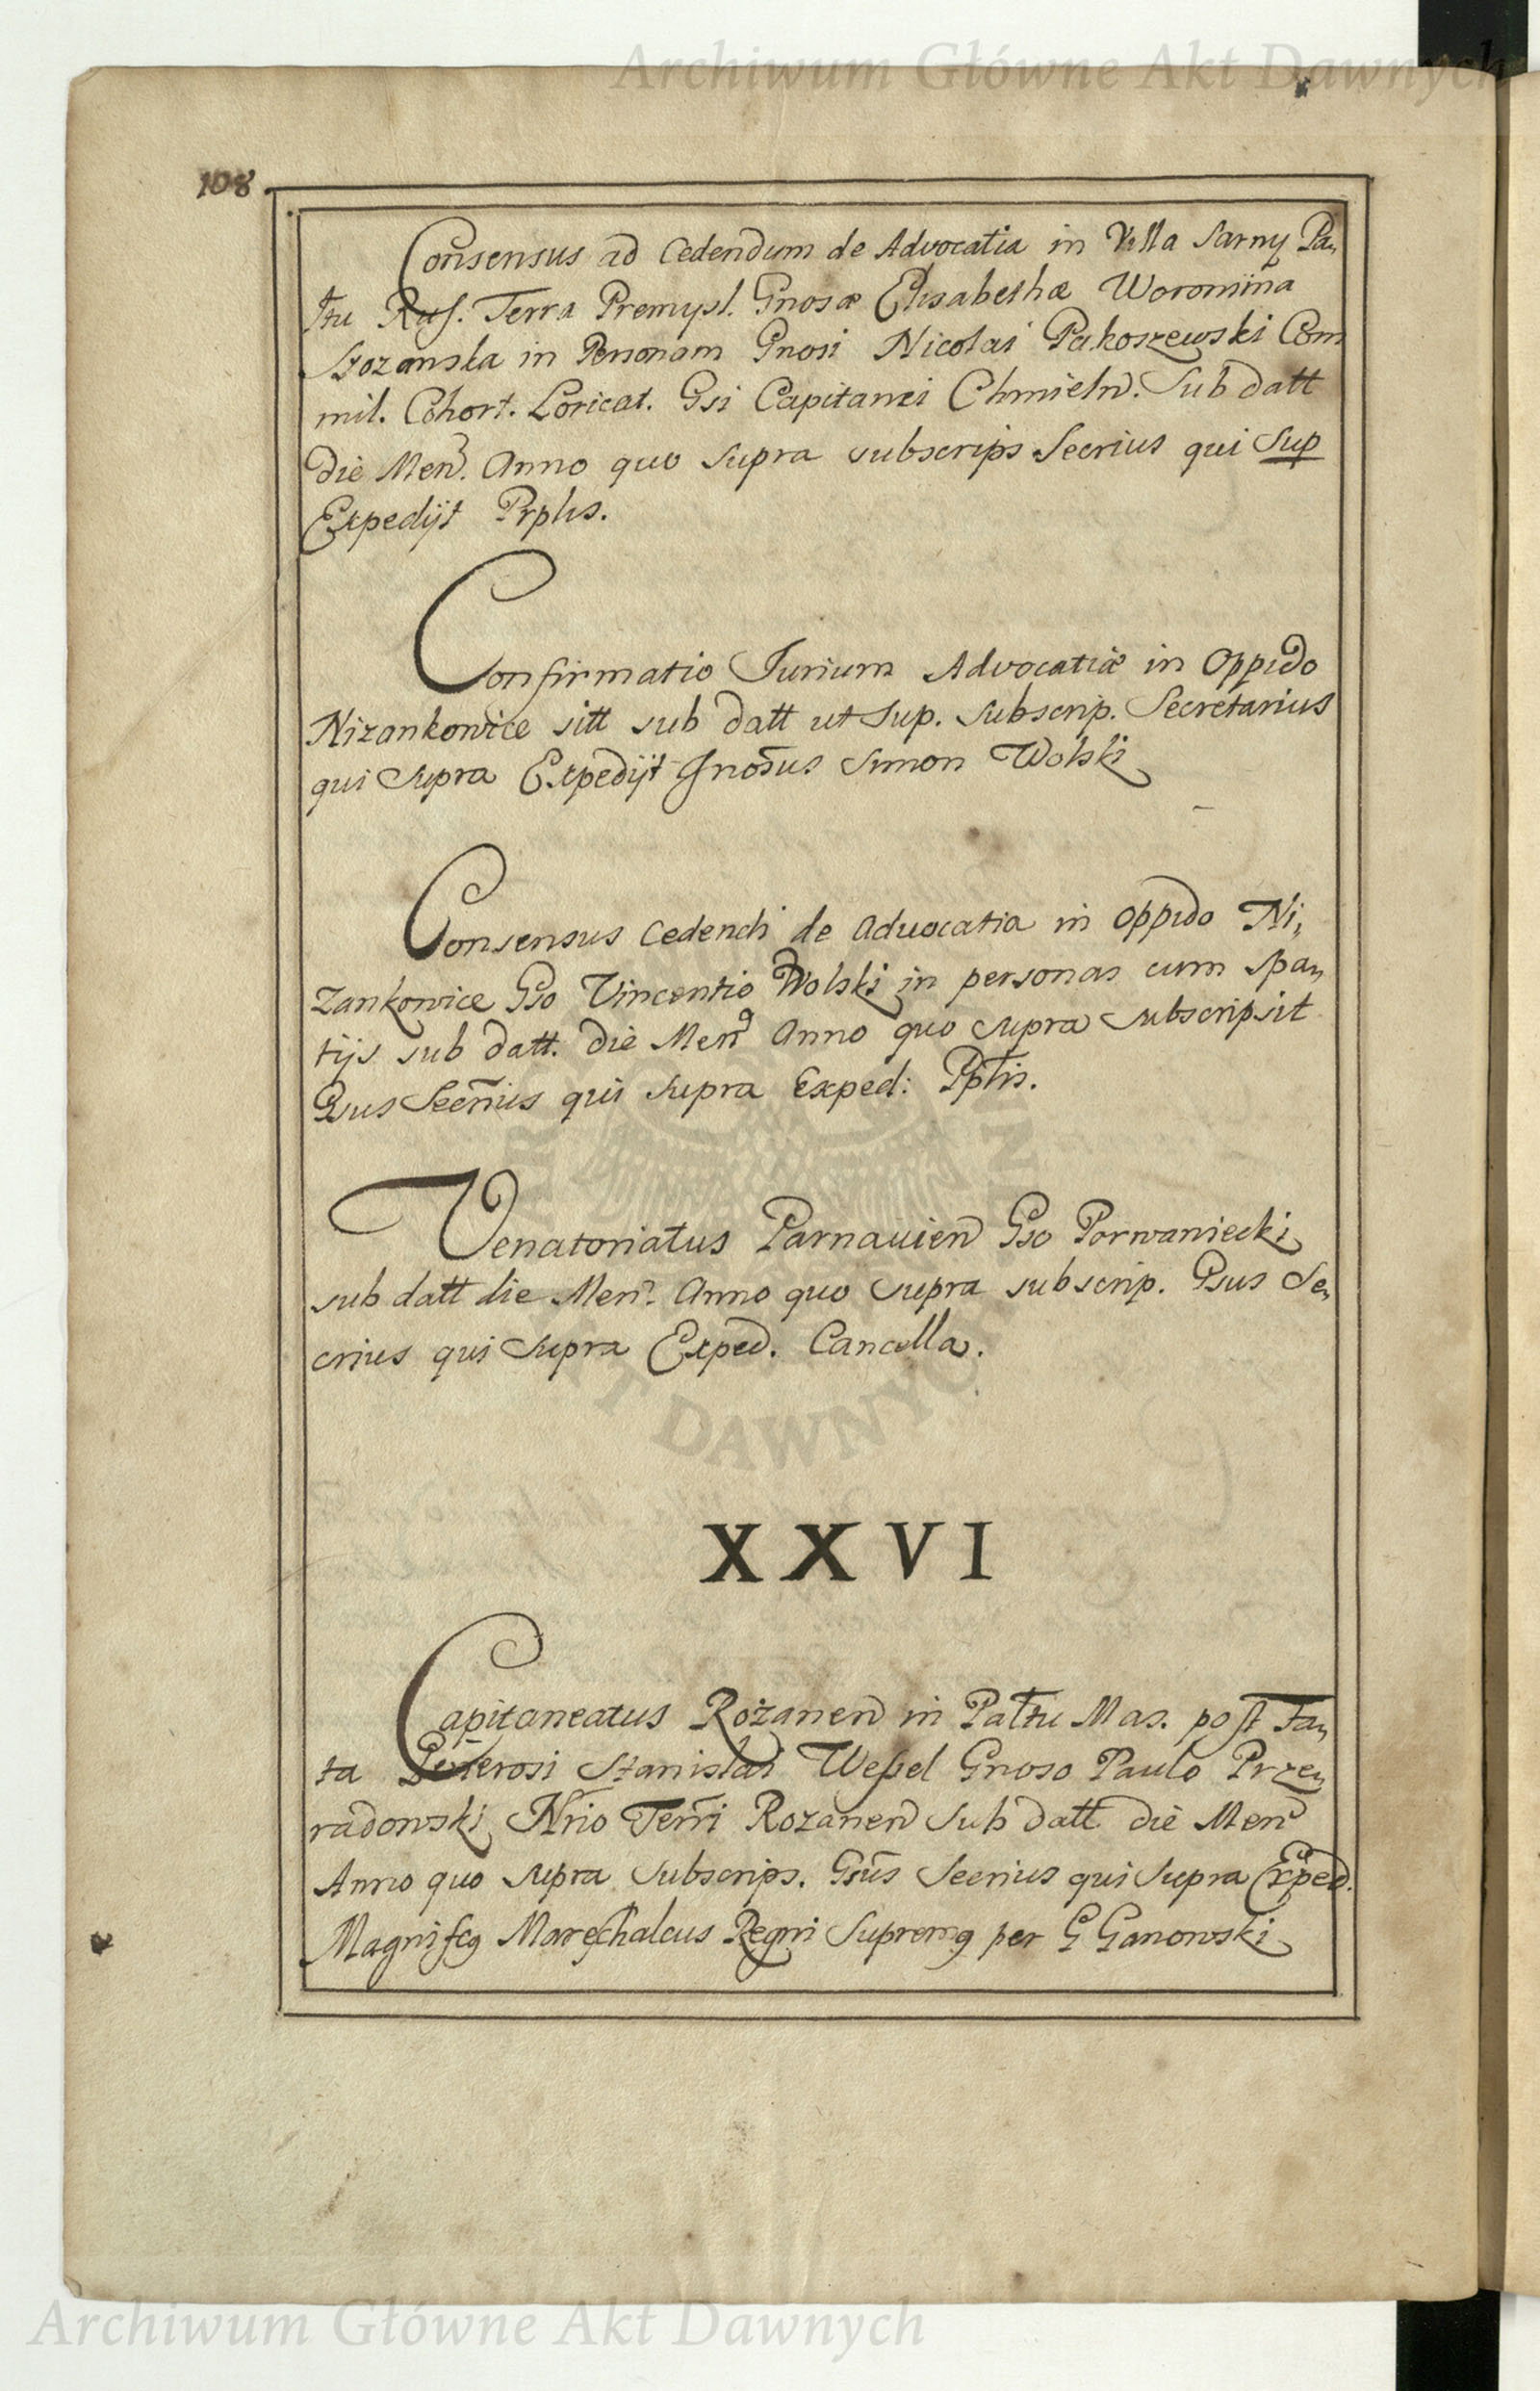 Archiwum Główne Akt Dawnych
108
Consensus ad Cedendum de Advocatia in Villa Sarny Pa,
ttu Rus. Terra Premysl. Gnosæ Elisabethæ
in Personam Gnosi Nicolai Pakoszewski Com
mil. Cohort. Loricat. Gsi Capitanei Chmieln. Sub datt
die Men. Anno quo Supra subscrips Secrius qui Sup
Expedijt
Confirmatio Jurium Advocatiæ in Oppido
Nizankowice sitt sub datt ut Sup. Subscrip. Secretarius
qui Supra Expedijt Gnosus Simon Wolski
Consensus Cedendi de Advocatia in Oppido Ni,
zankowice Gso Vincentio Wolski in personas cum Span
tijs sub datt. die Men Anno quo Supra Subscripsit
Gsus Secrius qui Supra Exped:
Venatoriatus Parnavien Gso Porwaniecki
sub datt die Men. Anno quo Supra subscrip. Gsus Se,
crius qui Supra Exped. Cancella.
XXVI
Capitaneatus Rożanen in Pattu Mas. post Fa,
ta Generosi Stanislai Wessel Gnoso Paulo Prze,
radowski Nrio Terri Rozanen Sub datt die Men
Anno quo Supra Subscrips. Gsus Secrius qui Supra Exped.
Mareschalcus Regni per G Ganowski
Archiwum Główne Akt Dawnych